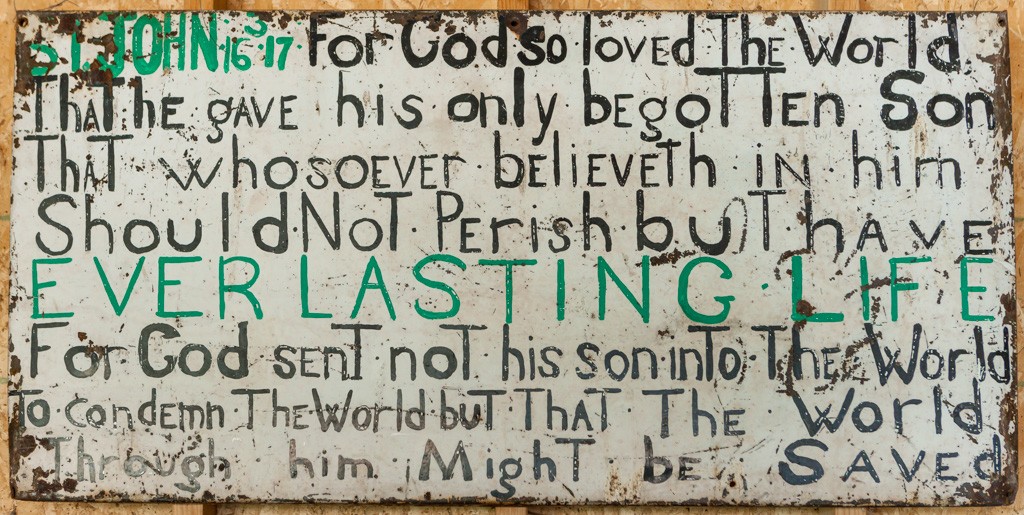 St. JOHN 16·17· For God so loved The World
ThaT he gAVE his only begoTTEn Son
ThAT whosoEVEr bElIEVETh iN him
Should NoT PErish buT hAVE
EVERLASTING·LIFE
For God sENT noT his son inTo The World
To condEmn ThE World buT ThAT ThE World
Through him MighT bE SAVEd